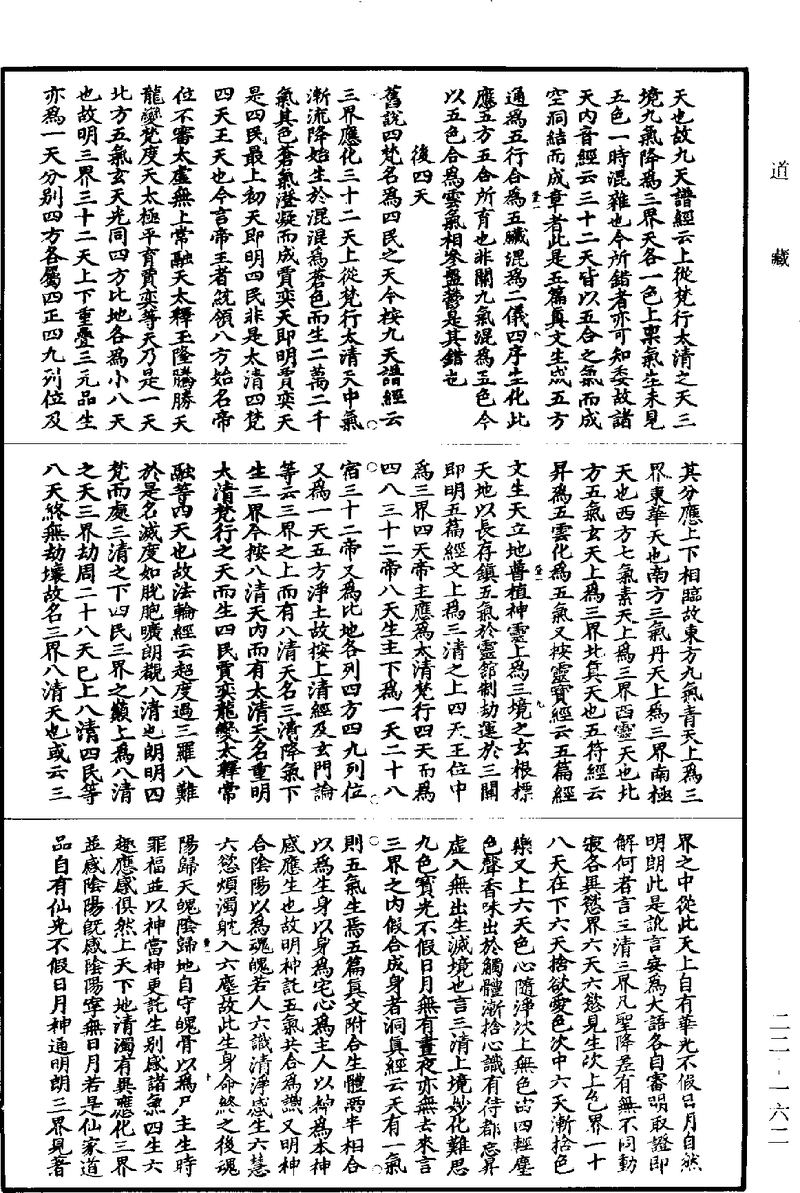 道藏
天也故九天譜經云上從梵行太清之天三
境九氣降為三界天各一色上稟氣生未見
五色一時混雜也今所錯者亦可知委故諸
天內音經云三十二天皆以五合之氣而成
空洞結而成章者此是五篇真文生成五方
通為五行合為五臟混為二儀四序生化此
應五方五合所育也非關九氣混為五色今
以五色合為雲氣相參盤鬱是其錯也
後四天
舊說四梵名為四民之天今按九天譜經云
三界應化三十二天上從梵行太清天中氣
漸流降始生於混混為蒼色而生二萬二千
氣其色蒼氣澄凝而成賈奕天即明賈奕天
是四民最上初天即明四民非是太清四梵
四天王天也今言帝王者統領八方始名帝
位不審太虛無上常融天太釋玉隆騰勝天
龍變梵度天太極平育賈奕等天乃是一天
北方五氣玄天光同四方比地各為小八天
也故明三界三十二天上下重疊三元品生
亦為一天分別四方各屬四正四九列位及
其分應上下相臨故東方九氣青天上為三
界東華天也南方三氣丹天上為三界南極
天也西方七氣素天上為三界西靈天也北
方五氣玄天上為三界北真天也五符經云
昇為五雲化為五氣又按靈寶經云五篇經
文生天立地普植神靈上為三境之玄根標
天地以長存鎮五氣於靈館制劫運於三關
即明五篇經文上為三清之上四天王位中
為三界四天帝主應為太清梵行四天而為
四八三十二帝八天生主下為一天二十八
宿三十二帝又為比地各列四方四九列位
又為一天五方淨土故按上清經及玄門論
等云三界之上而有八清天名三清降氣下
生三界今按八清天內而有太清天名重明
太清梵行之天而生四民賈奕龍變太釋常
融等四天也故法輪經云超度過三羅八難
於是名滅度如脫胞曠朗觀八清也朗明四
梵而處三清之下四民三界之巔上為八清
之天三界劫周二十八天已上八清四民等
八天終無劫壞故名三界八清天也或云三
界之中從此天上自有華光不假日月自然
明朗此是說言妄為大語各自審明取證即
解何者言三清三界凡聖降差有無不同動
寂各異慾界六天六慾見生次上色界一十
八天在下六天捨欲愛色次中六天漸捨色
樂又上六天色心隨淨次上無色皆四輕塵
色聲香味出於觸體漸捨心識有待都忘昇
虛入無出生滅境也言三清上境妙化難思
九色寶光不假日月無有晝夜亦無去來言
三界之內假合成身者洞真經云天有一氣
則五氣生焉五篇真文附合生體兩半相合
以為生身以身為宅心為主人以神為本神
感應生也故明神託五氣共合為識又明神
合陰陽以為魂魄若人六識清淨感生六慧
六慾煩濁躭入六塵故此生身命終之後魂
陽歸天魄陰歸地自守魄骨以為尸主生時
罪福並以神當神更託生別感諸氣四生六
趣應感俱然上天下地清濁有異應化三界
並感陰陽既感陰陽寧無日月若是仙家道
品自有仙光不假日月神通明朗三界見著
二二－一六二